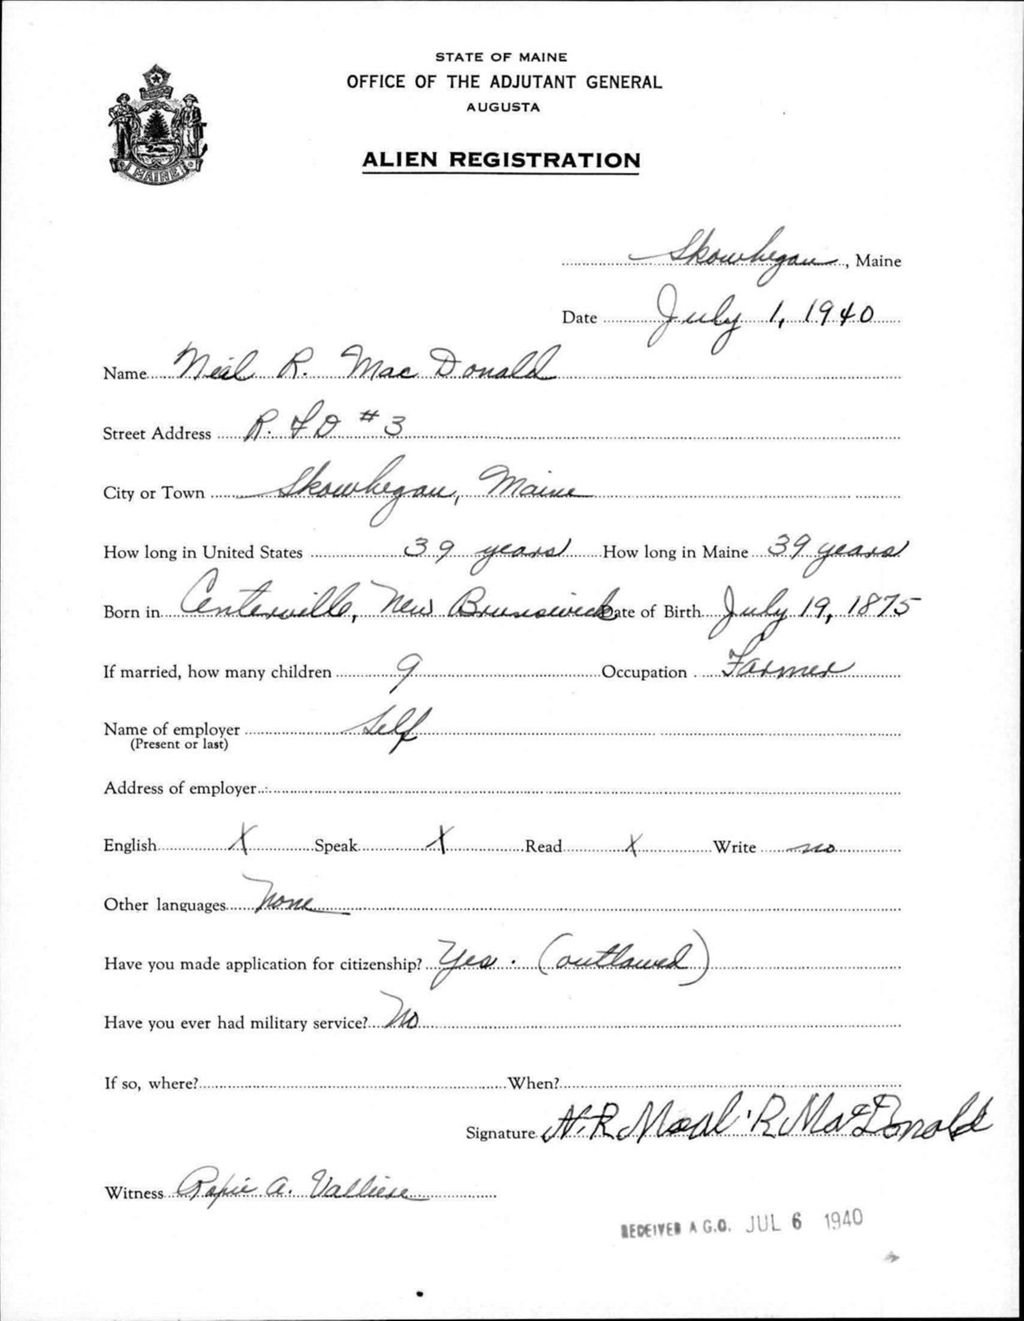 STATE OF MAINE
OFFICE OF THE ADJUTANT GENERAL
AUGUSTA
ALIEN REGISTRATION
MAINE
Skowhegan, Maine
Date July 1, 1940
Name Neil R. MacDonald
Street Address R. F D #3
City or Town Skowhegan, Maine
How long in United States 39 years How long in Maine 39 years
Born in Centerville, New Brunswick Date of Birth July 19, 1875
If married, how many children 9 Occupation Farmer
Name of employer Self
(Present or last)
Address of employer
English X Speak X Read X Write no
Other languages None
Have you made application for citizenship? Yes. (outlawed)
Have you ever had military service? No
If so, where? When?
Signature N. R. R MacDonald
Witness A. Valliere
RECEIVED A.G.O. JUL 6 1940